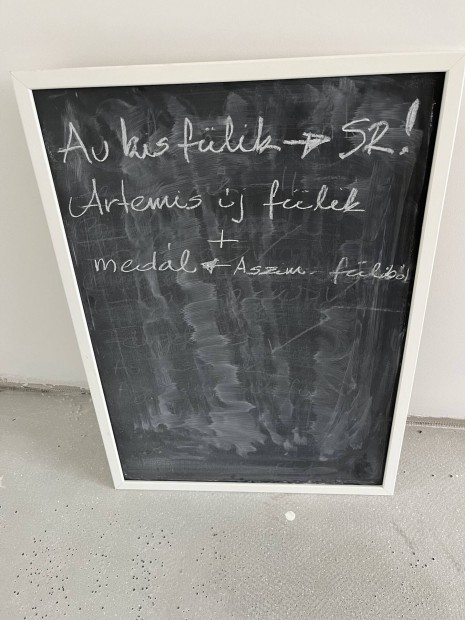 Au kis fülik → SR!
Artemis új fülik
+
medál ← Aszim. füliből